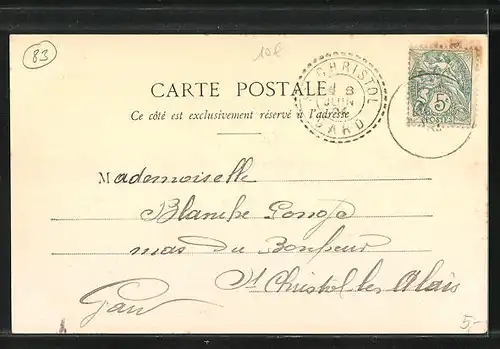 83
10f
CHRISTOL
8
JUIN
GARD
5c
POSTES
CARTE POSTALE
Ce côté est exclusivement réservé à l'adresse
Mademoiselle
Blanche
mas du Bonheur
St Christol les Alais
Gard
5,-